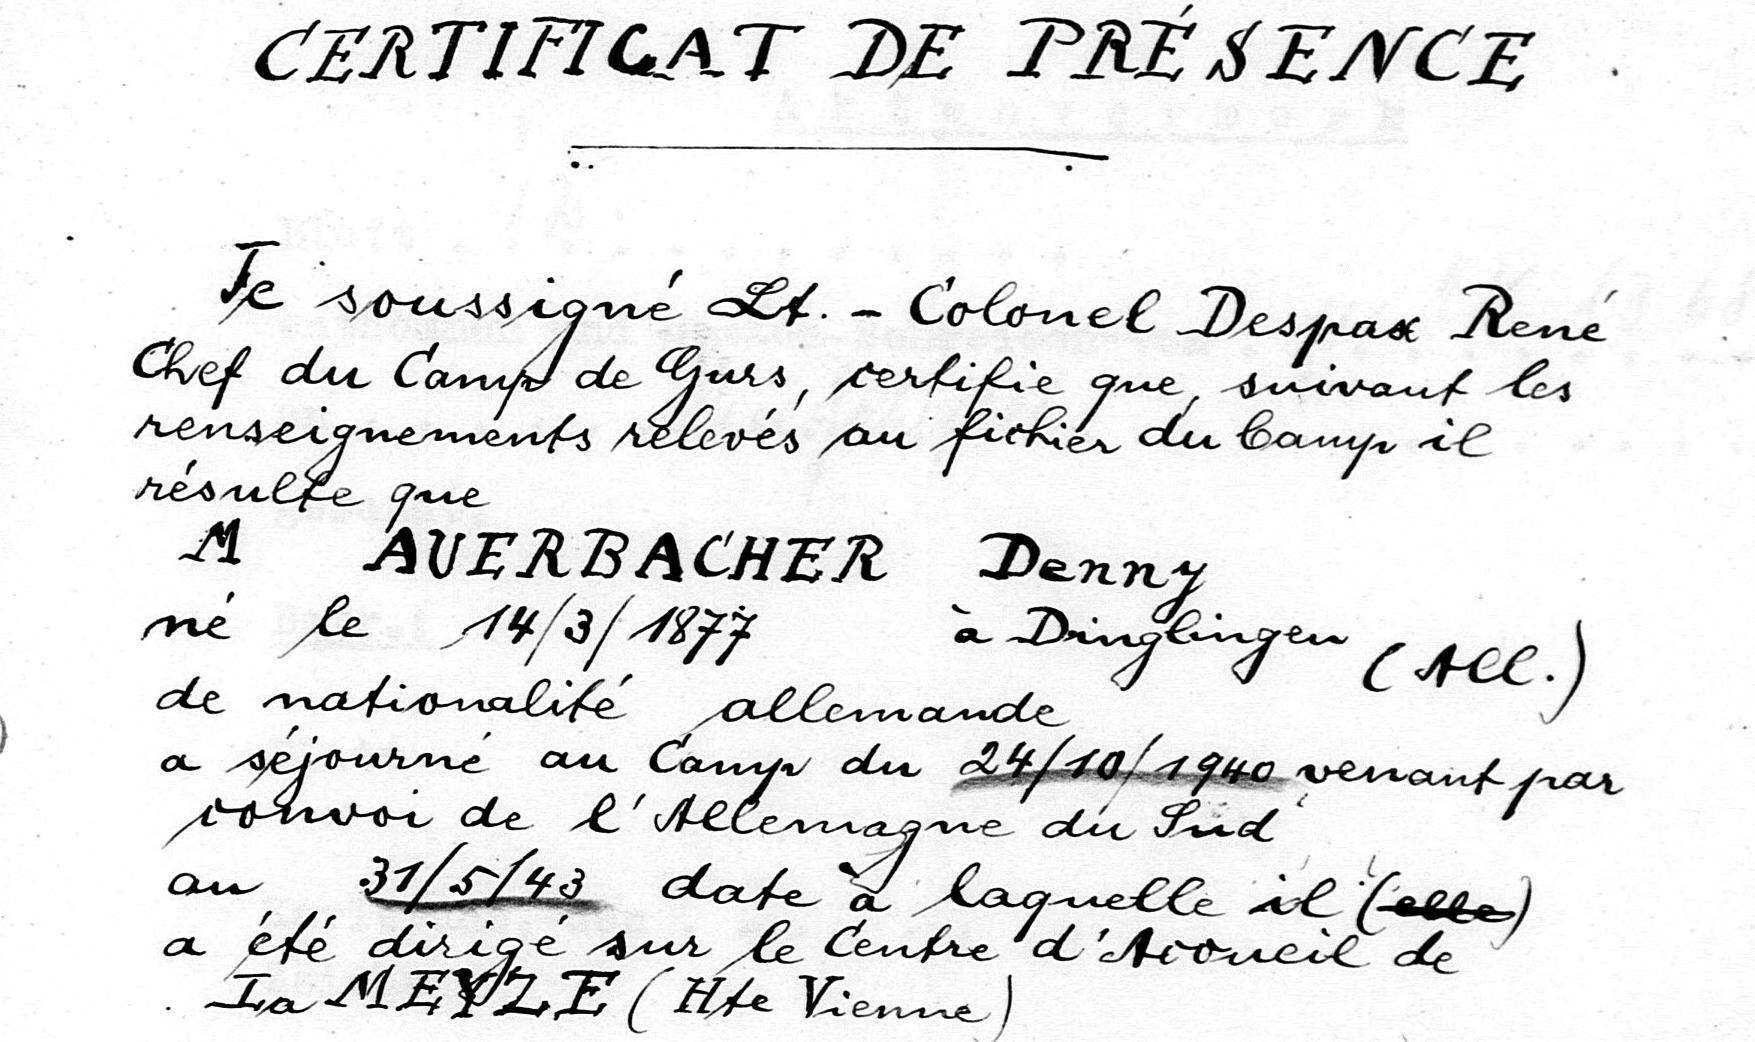 CERTIFICAT DE PRÉSENCE
Je soussigné Lt. - Colonel Despax René
Chef du Camp de Gurs, certifie que, suivant les
renseignements relevés au fichier du Camp il
résulte que
M AUERBACHER Denny
né le 14/3/1877 à Dinglingen (All.)
de nationalité allemande
a séjourné au Camp du 24/10/1940 venant par
convoi de l'Allemagne du Sud
au 31/5/43 date à laquelle il (elle)
a été dirigé sur le Centre d'Accueil de
La MEYZE (Hte Vienne)